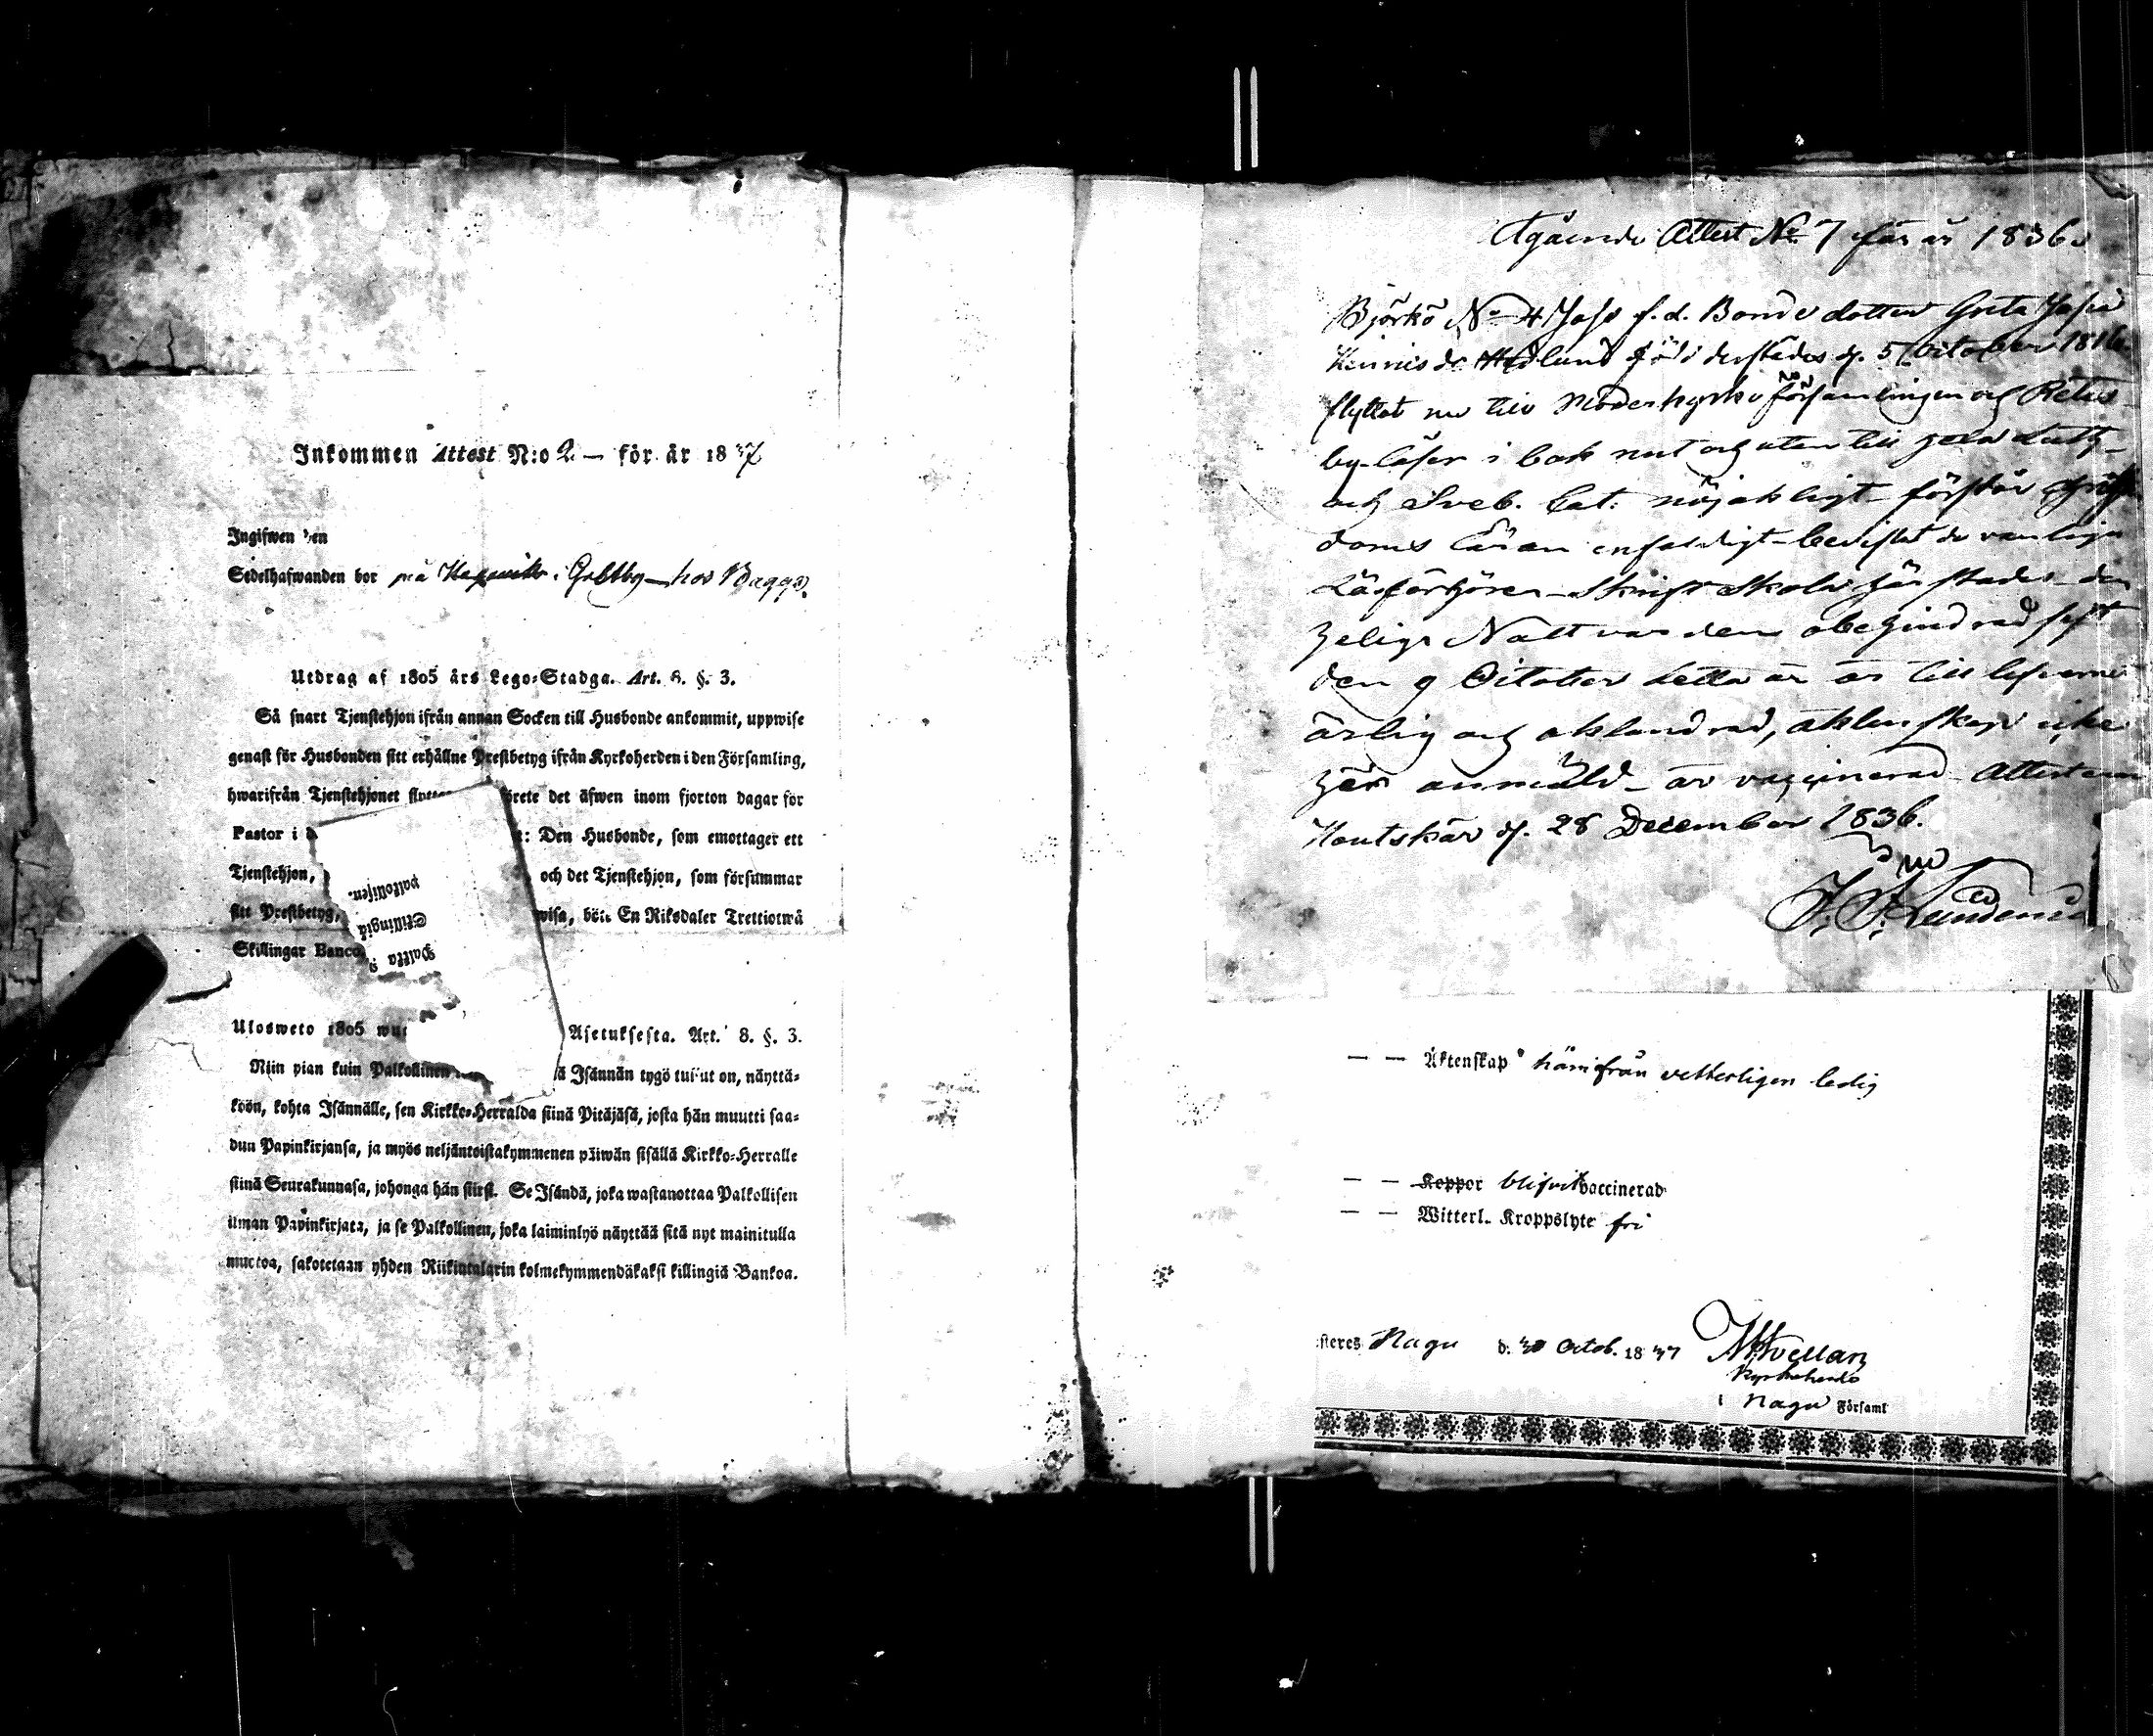 Inkommen Attest N:o 2 — för år 1837
Ingifwen den
Sedelhafwanden bor på i Grebby — hos Baggo.
Utdrag af 1805 års Lego-Stadga. Art. 8. §. 3.
Så snart Tjenstehjon ifrån annan Socken till Husbonde ankommit, uppwise
genast för Husbonden sitt erhållne Prestbetyg ifrån Kyrkoherden i den Församling,
hwarifrån Tjenstehjonet det äfwen inom fjorton dagar för
Pastor i Den Husbonde, som emottager ett
Tjenstehjon, och det Tjenstehjon, som försummar
sitt Prestbetyg, böte En Riksdaler Trettiotwå
Skillingar Banco
palkollisen.
Skillingiä
Palkka
Ulosweto 1805 Asetuksesta. Art. 8. §. 3.
Niin pian kuin Palkollinen Isännän tygö tullut on, näyttä-
köön, kohta Isännälle, sen Kirkko-Herralda siinä Pitäjäsä, josta hän muutti saa-
dun Papinkirjansa, ja myös neljäntoistakymmenen päiwän sisällä Kirkko-Herralle
siinä Seurakunnasa, johonga hän siirsi. Se Isändä, joka wastanottaa Palkollisen
ilman Papinkirjata, ja se Palkollinen, joka laiminlyö näyttää sitä nyt mainitulla
muotoa, sakotetaan yhden Riikintalarin kolmekymmendäkaksi killingiä Bankoa.
Utgående Attest No 7 för år 1836
Björkö No 4 f.d. Bonde dotter Greta
Hedlund född derstädes d. 5 October 1816
flyttat nu till Moderkyrko församlingen och
by. läser i bok nut och utan till
och Sveb. Cat. nöjaktigt förstår
doms Läran enfaldigt bevistat de vanliga
Läsförhören Skrift Skola härstädes den
helige Nattvarden obehindrad sist
den 9 October detta år är till lefverne
ärlig och oklandrad, äktenskap icke
här anmäld — är vaccinerad Attesterar
Houtskär d. 28 December 1836.
— — Äktenskap härifrån vetterligen ledig
— — Koppor blifvit vaccinerad
— — Witterl. Kroppslyte fri
steres Nagu d. 30 Octob. 1837
Kyrkoherde
i Nagu Församl